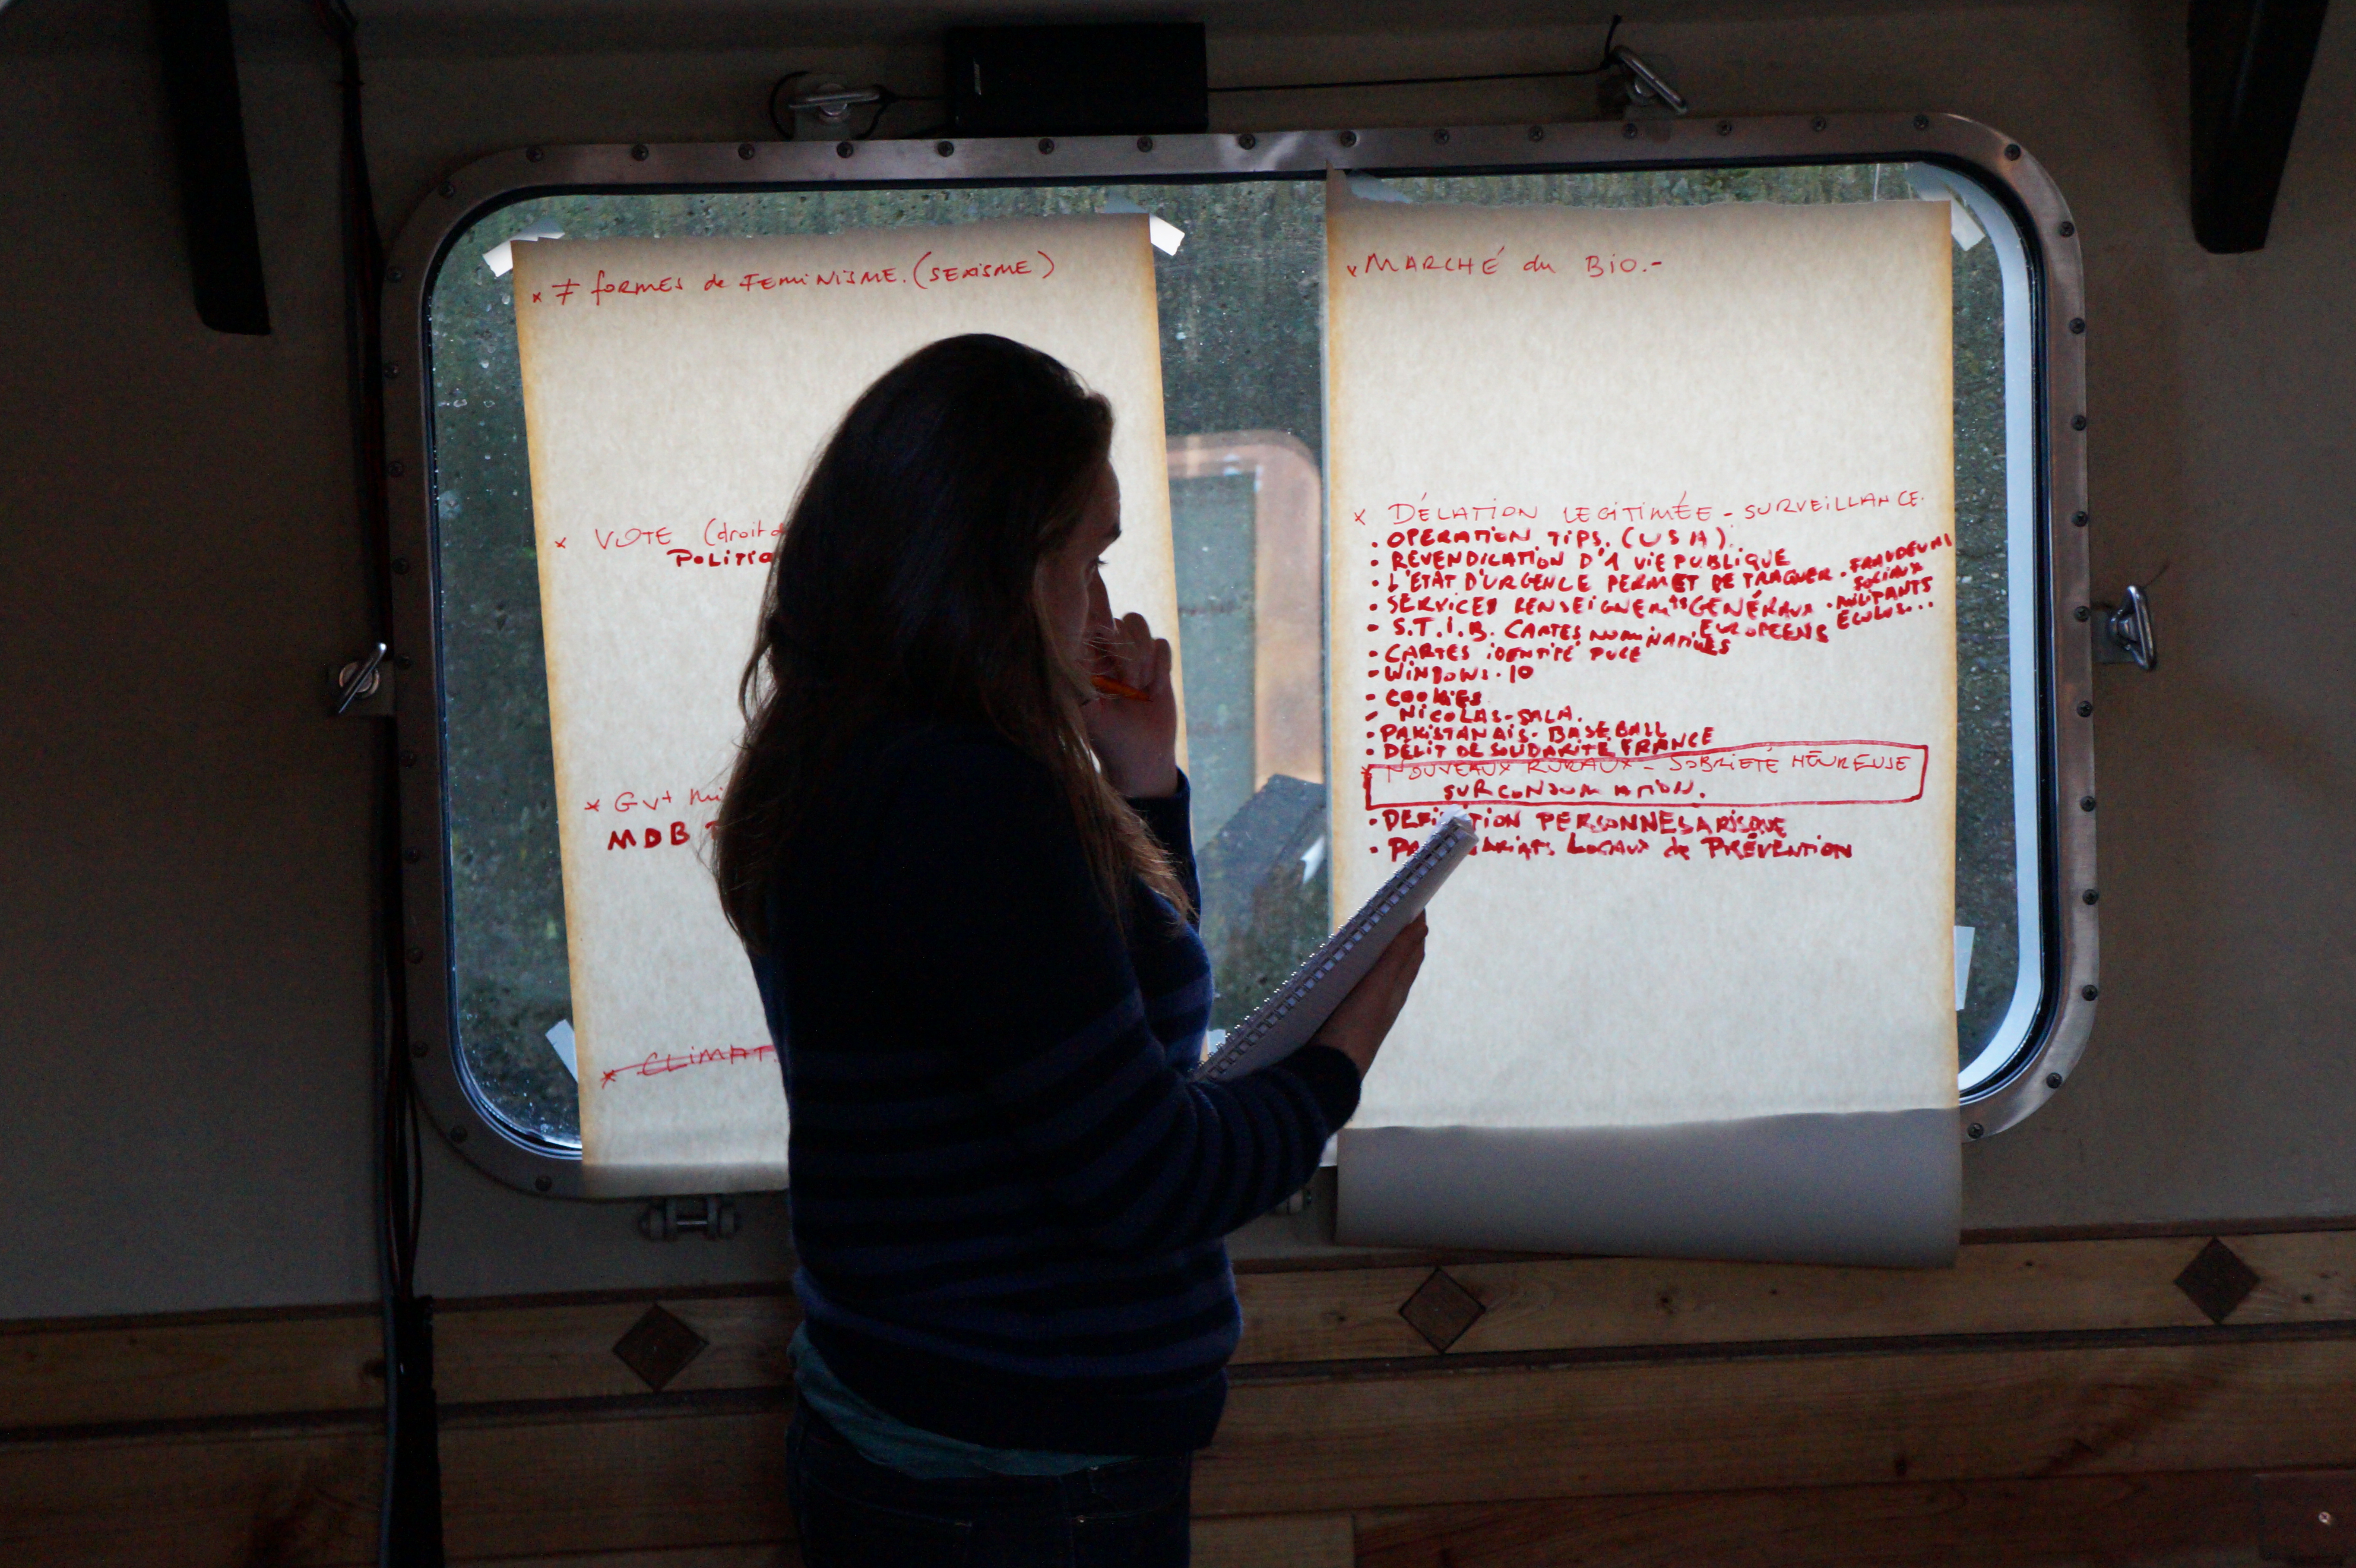 × ≠ formes de FEMINISME. (SEXISME)
× VOTE (droit d
POLITIQ
× Gvt
MDB
× CLIMAT
× MARCHÉ du BIO.-
× DÉLATION LEGITIMÉE - SURVEILLANCE.
• OPERATION TIPS. (USA)
• REVENDICATION D'1 VIE PUBLIQUE
• L'ETAT D'URGENCE PERMET DE TRAQUER • FRAUDEURS SOCIAUX
• MILITANTS ECOLOS...
• SERVICES RENSEIGNEMts GENÉRAUX EUROPEENS
• S.T.I.B. CARTES NOMINATIVES
• CARTES IDENTITÉ PUCE
• WINDOWS.10
• COOKIES
• NICOLAS-SALA.
• PAKISTANAIS. BASEBALL
• DÉLIT DE SOLIDARITÉ FRANCE
× NOUVEAUX RURAUX - SOBRIETÉ HEUREUSE
SURCONSOMMATION.
PERSONNES A RISQUE
LOCAUX de PRÉVENTION